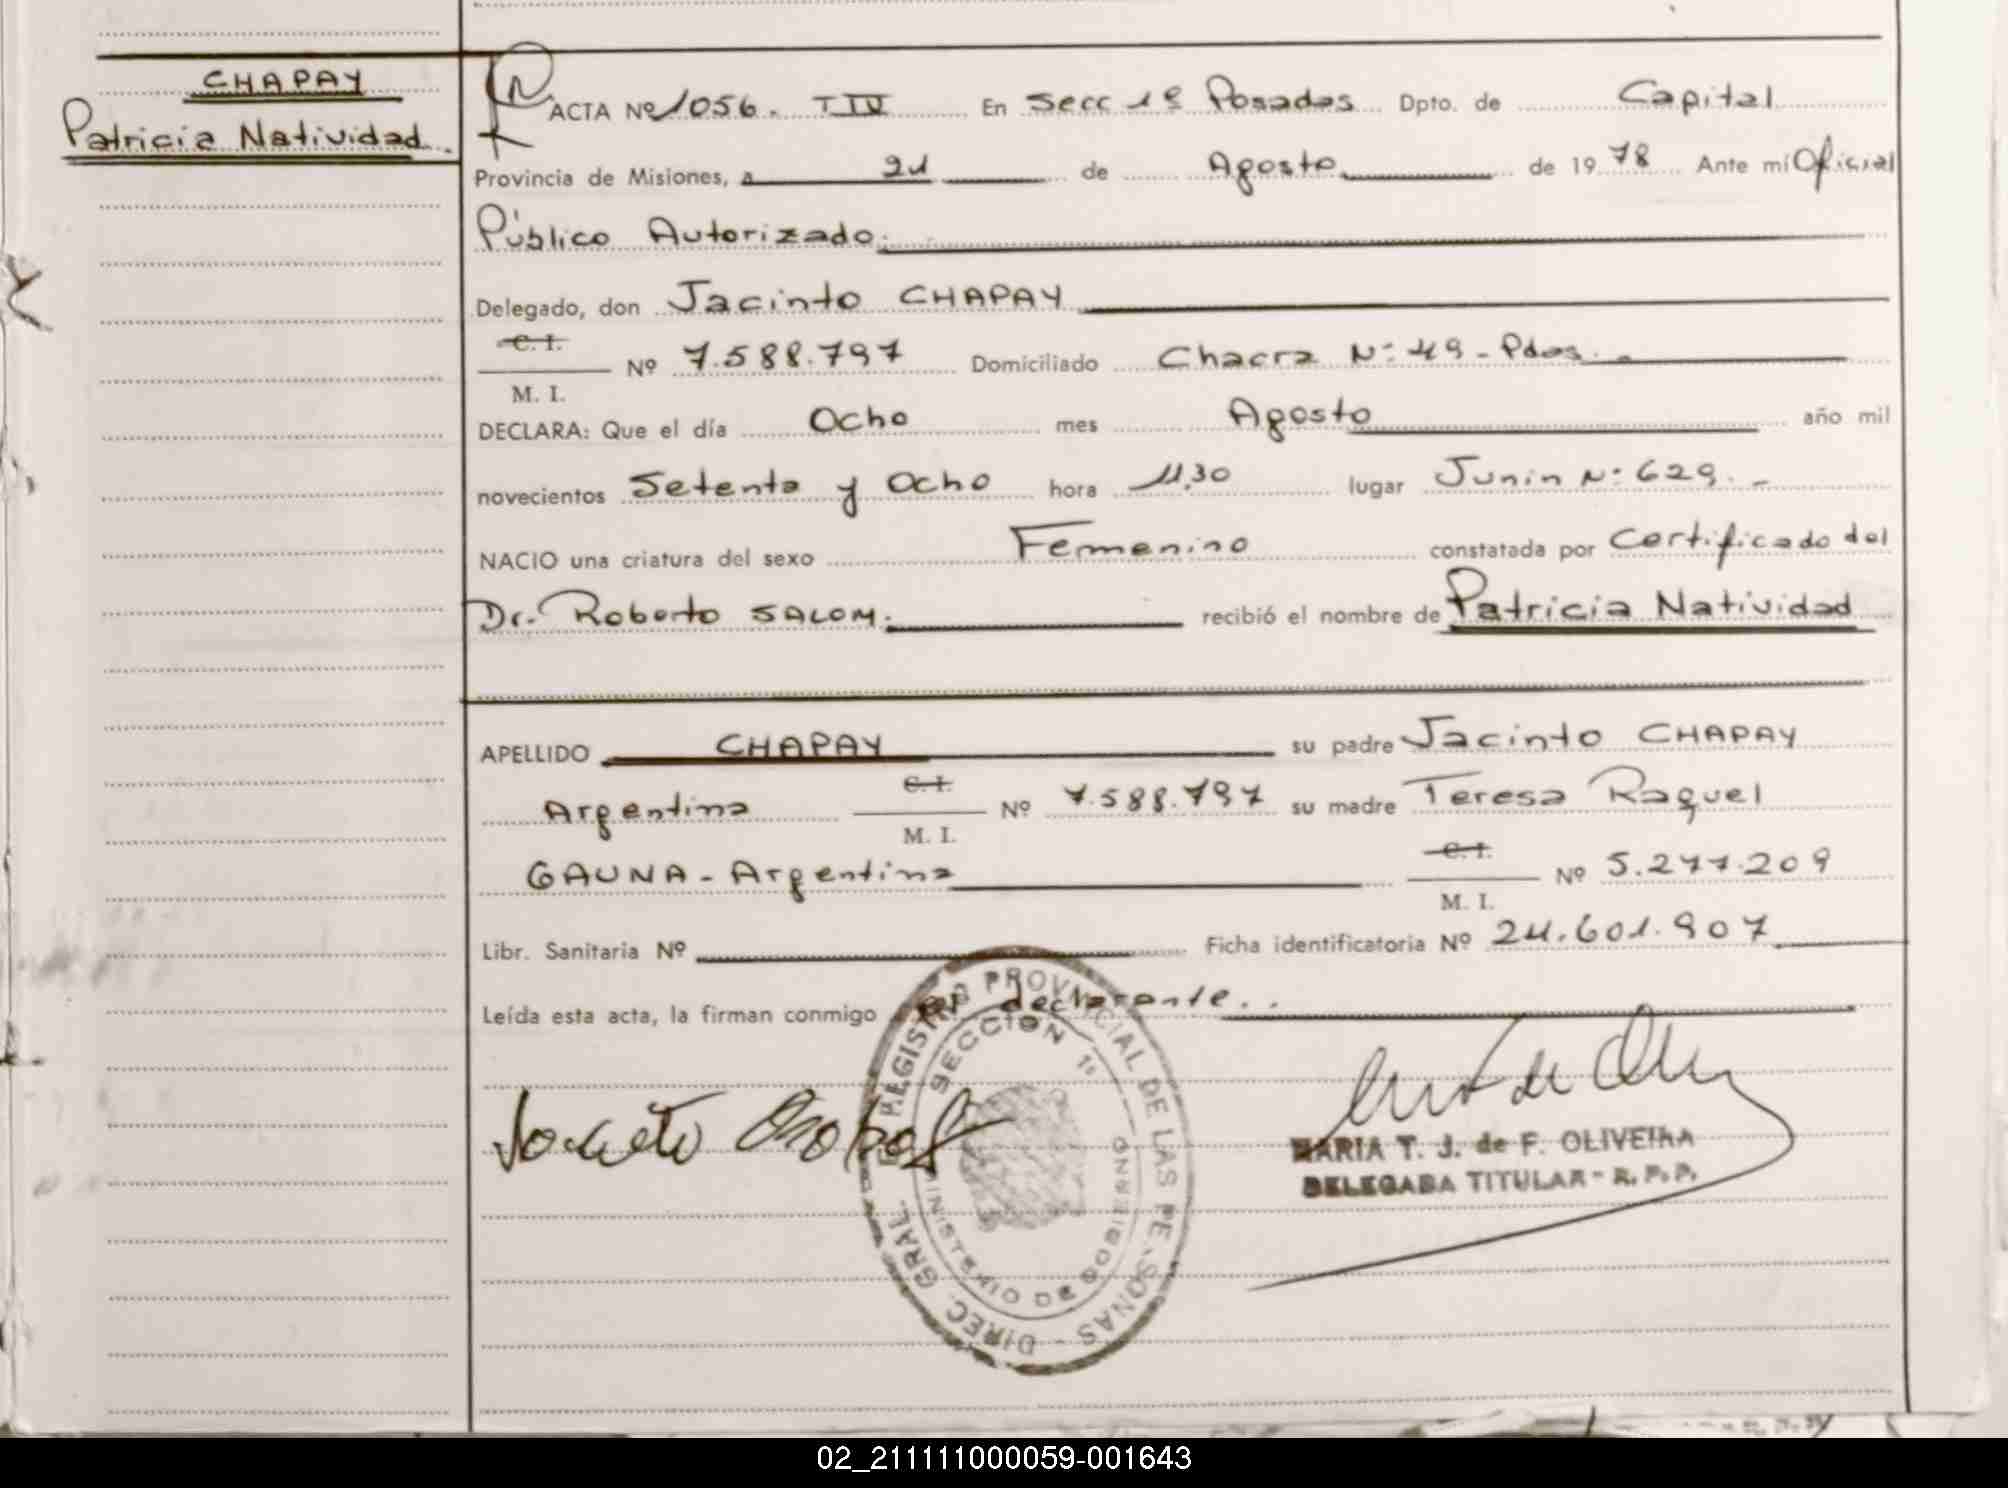 CHAPAY
Patricia Natividad.
ACTA Nº 1056. T IV En Secc 1º Posadas Dpto. de Capital
Provincia de Misiones, a 24 de Agosto de 1978 Ante mí Oficial
Público Autorizado.
Delegado, don Jacinto CHAPAY
C. I.
M. I.
Nº 7.588.797 Domiciliado Chacra Nº 49 - Pdas.
DECLARA: Que el día Ocho mes Agosto año mil
novecientos Setenta y Ocho hora 11,30 lugar Junin Nº 629. -
NACIO una criatura del sexo Femenino constatada por Certificado del
Dr. Roberto SALOM. recibió el nombre de Patricia Natividad
APELLIDO CHAPAY su padre Jacinto CHAPAY
Argentina C. I. M. I. Nº 7.588.797 su madre Teresa Raquel
GAUNA - Argentina C. I. M. I. Nº 5.277.209
Libr. Sanitaria Nº Ficha identificatoria Nº 24.601.907
Leída esta acta, la firman conmigo el declarante..
DIREC. GRAL. REGISTRO PROVINCIAL DE LAS PERSONAS
SECCION 1º
MINISTERIO DE GOBIERNO
Jacinto Chapay
MARIA T. J. de F. OLIVEIRA
DELEGADA TITULAR - R. P. P.
02_211111000059-001643